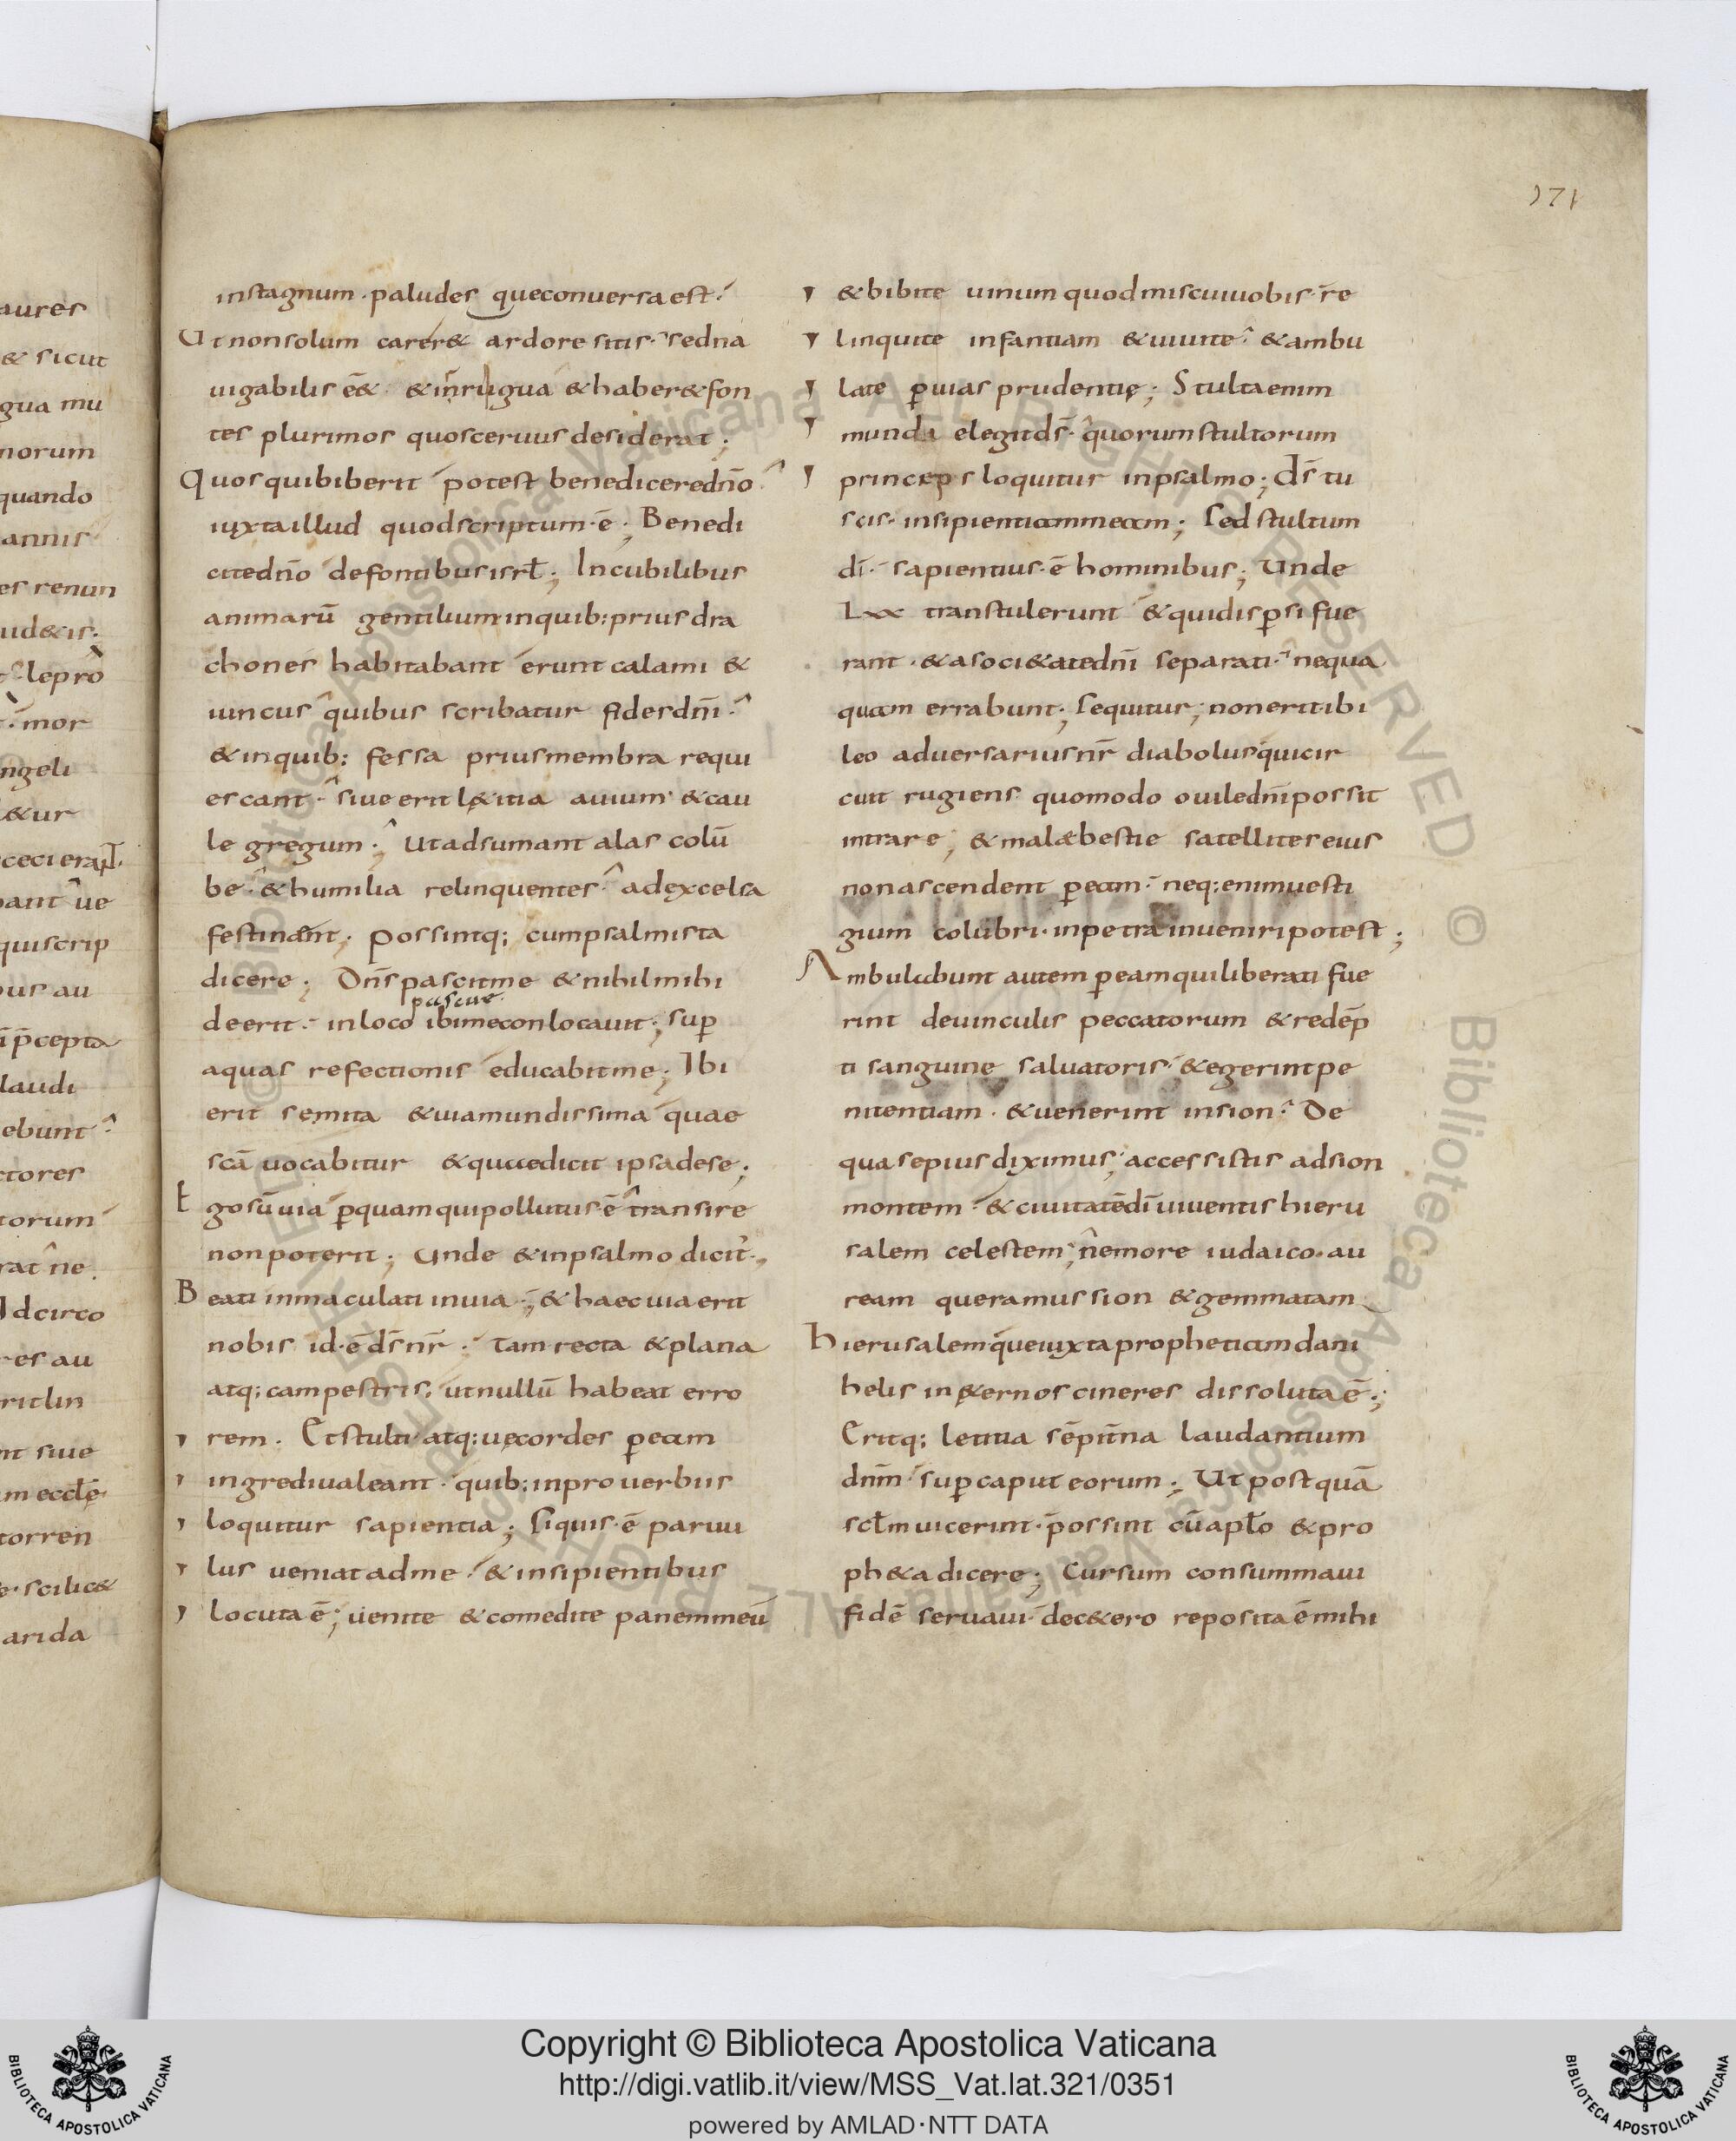 171
aures
& sicut
gua mu
norum
quando
annis
es renun
ud&is.
lepro
mor
ngeli
&ur
ceci erant.
bant ue
qui scrip
pus au
p̄cepta
laudi
ebunt
ctores
torum
rat ne.
Idcirco
res au
rit lin
nt siue
m eccl̄ę
torren
scilic&
arida
in stagnum · paludes que conuersa est·
Ut non solum carer& ardore sitis · sed na
uigabilis ēē& · & inrigua & haber& fon
tes plurimos quos ceruus desiderat ;
Quos qui biberit potest benedicere dn̄o
iuxta illud quod scriptum·ē ; Benedi
cite dn̄o de fontibus isrl̄ ; In cubilibus
animarū gentilium in quib: prius dra
chones habitabant erunt calami &
iuncus quibus scribatur fides dn̄i ·
& in quib: fessa prius membra requi
escant · siue erit l&itia auium & cau
le gregum ·; Ut adsumant alas colū
be · & humilia relinquentes · ad excelsa
festinant ; possintq; cum psalmista
dicere ; Dn̄s pascit me & nihil mihi
deerit · in loco ibi me conlocauit ; sup̄
pascue
aquas refectionis educabit me ; Ibi
erit semita & uia mundissima quae
scā uocabitur & quae dicit ipsa de se ;
Ego sū uia p̄ quam qui pollutus ē transire
non poterit ; Unde & in psalmo dicit̄·,
Beati inmaculati in uia ·; & haec uia erit
nobis id·ē dś nr̄ · tam recta & plana
atq; campestris ; ut nullū habeat erro
rem . Et stulti atq: uęcordes p̄ eam
ingredi ualeant · quib: in prouerbiis
loquitur sapientia ; Si quis·ē paruu
lus ueniat ad me · & insipientibus
locuta ē ; uenite & comedite panem meū
& bibite uinum quod miscui uobis · re
linquite infantiam & uiuite · & ambu
late p̄ uias prudentię ; Stulta enim
mundi elegit dś · quorum stultorum
princeps loquitur in psalmo ; dś tu
scis · insipientiam meam ; Sed stultum
dī · sapientius·ē hominibus ; Unde
Lxx transtulerunt & qui disp̄si fue
rant · & a soci&ate dn̄i separati · nequa
quam errabunt ·; sequitur ; non erit ibi
leo aduersarius nr̄ diabolus qui cir
cuit rugiens quomodo ouile dn̄i possit
intrare ; & malæ bestie satellites eius
non ascendent p̄ eam · neq; enim uesti
gium colubri · in petra inueniri potest ;
Ambulabunt autem p̄ eam qui liberati fue
rint de uinculis peccatorum & redēp
ti sanguine saluatoris & egerint pe
nitentiam · & uenerint in sion · De
qua sepius diximus ; accessistis ad sion
montem · & ciuitatē dī uiuentis hieru
salem celestem ; ne more iudaico · au
ream queramus sion & gemmatam
hierusalem que iuxta prophetiam dani
helis in &ernos cineres dissoluta ē ·;
Eritq; letitia sēpit̄na laudantium
dn̄m · sup̄ caput eorum ; Ut postquā
scl̄m uicerint · possint cū apl̄o & pro
ph&a dicere ; Cursum consummaui
fidē seruaui · dec&ero reposita ē mihi
Copyright © Biblioteca Apostolica Vaticana
http://digi.vatlib.it/view/MSS_Vat.lat.321/0351
powered by AMLAD·NTT DATA
BIBLIOTECA APOSTOLICA VATICANA
BIBLIOTECA APOSTOLICA VATICANA